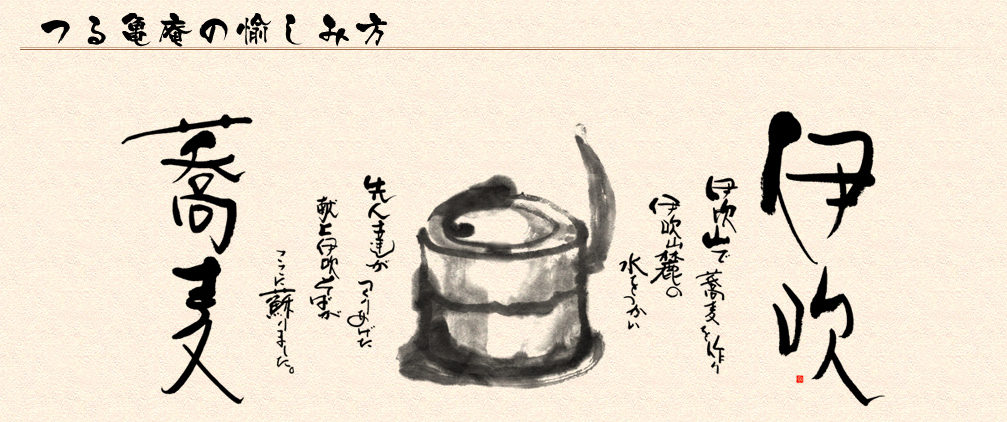 つる亀庵の愉しみ方
伊吹
伊吹山で蕎麦を作り
伊吹山麓の
水をつかい
先人達が
つくりあげた
献上伊吹そばが
ここに蘇りました。
蕎麦